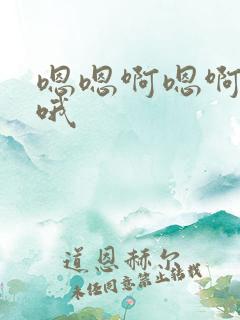 嗯嗯啊嗯啊
哦
道恩赫尔
未经同意禁止转载